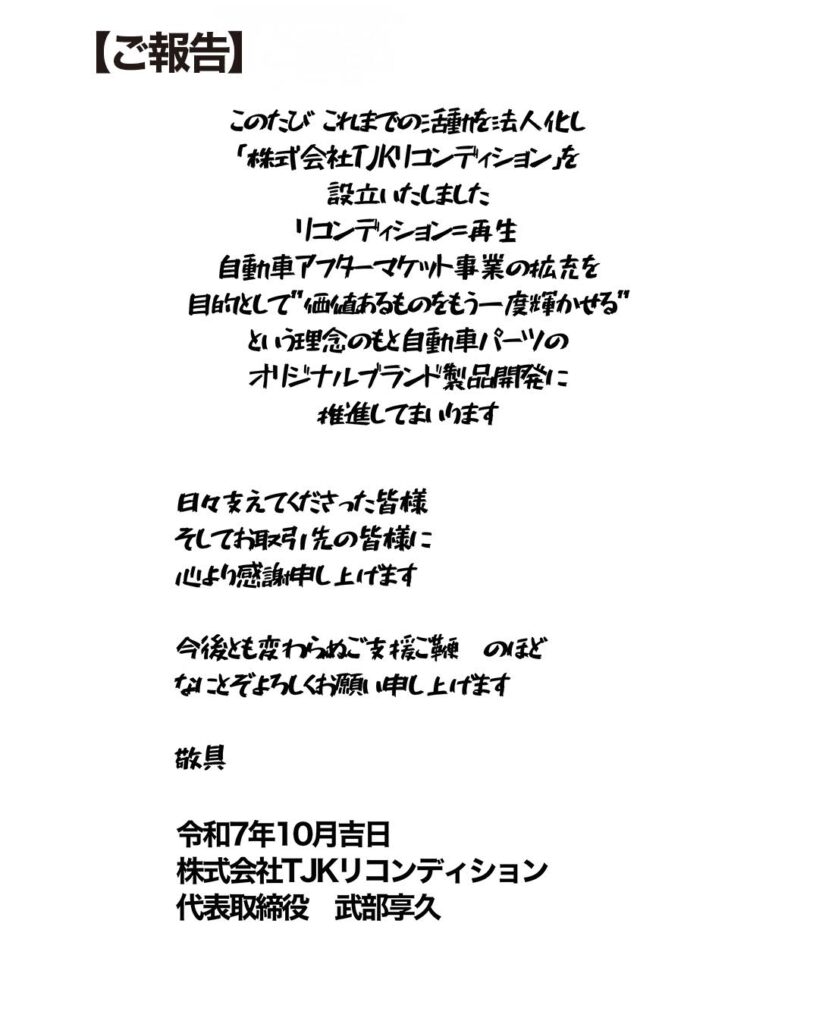 【ご報告】
このたび これまでの活動を法人化し
「株式会社TJKリコンディション」を
設立いたしました
リコンディション=再生
自動車アフターマケット事業の拡充を
目的として"価値あるものをもう一度輝かせる"
という理念のもと自動車パーツの
オリジナルブランド製品開発に
推進してまいります
日々支えてくださった皆様
そしてお取引先の皆様に
心より感謝申し上げます
今後とも変わらぬご支援ご鞭　のほど
なにとぞよろしくお願い申し上げます
敬具
令和7年10月吉日
株式会社TJKリコンディション
代表取締役　武部享久